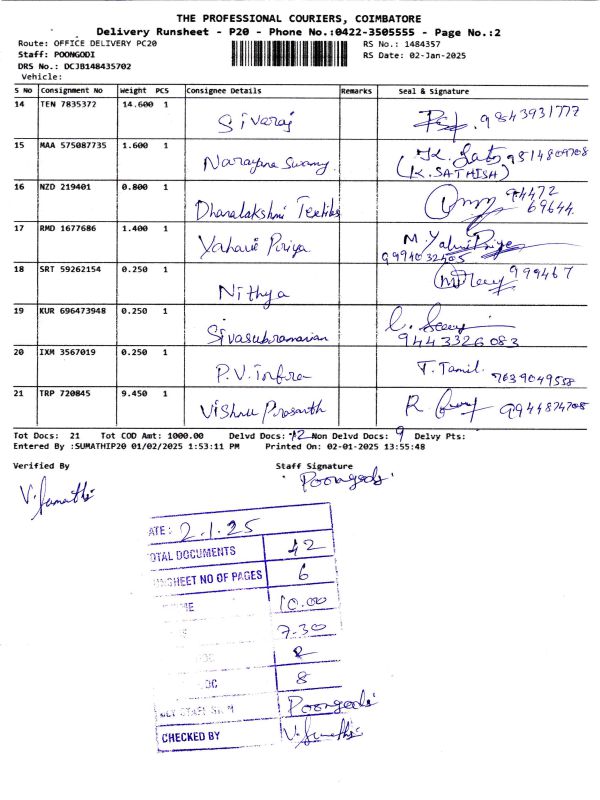 THE PROFESSIONAL COURIERS, COIMBATORE
Delivery Runsheet - P20 - Phone No.:0422-3505555 - Page No.:2
Route: OFFICE DELIVERY PC20 RS No.: 1484357
Staff: POONGODI RS Date: 02-Jan-2025
DRS No.: DCJB148435702
Vehicle:
S No Consignment No Weight PCS Consignee Details Remarks Seal & Signature
14 TEN 7835372 14.600 1 Sivaraj 9843931777
15 MAA 575087735 1.600 1 Narayana Swamy 9514809708
(K. SATHISH)
16 NZD 219401 0.800 1 Dhanalakshmi Textiles 94472
69644
17 RMD 1677686 1.400 1 Yahavi Piriya M. Yahavi Priya
9994032505
18 SRT 59262154 0.250 1 Nithya 999467
19 KUR 696473948 0.250 1 Sivasubramanian
9443326083
20 IXM 3567019 0.250 1 P.V. T. Tamil. 9639049558
21 TRP 720845 9.450 1 Vishnu Prasanth R 9944874708
Tot Docs: 21 Tot COD Amt: 1000.00 Delvd Docs: 12 Non Delvd Docs: 9 Delvy Pts:
Entered By :SUMATHIP20 01/02/2025 1:53:11 PM Printed On: 02-01-2025 13:55:48
Verified By Staff Signature
V. Sumathi Poongodi
ATE: 2.1.25
OTAL DOCUMENTS 42
NGHEET NO OF PAGES 6
ME 10.00
7.30
2
OC 8
Poongodi
CHECKED BY V. Sumathi